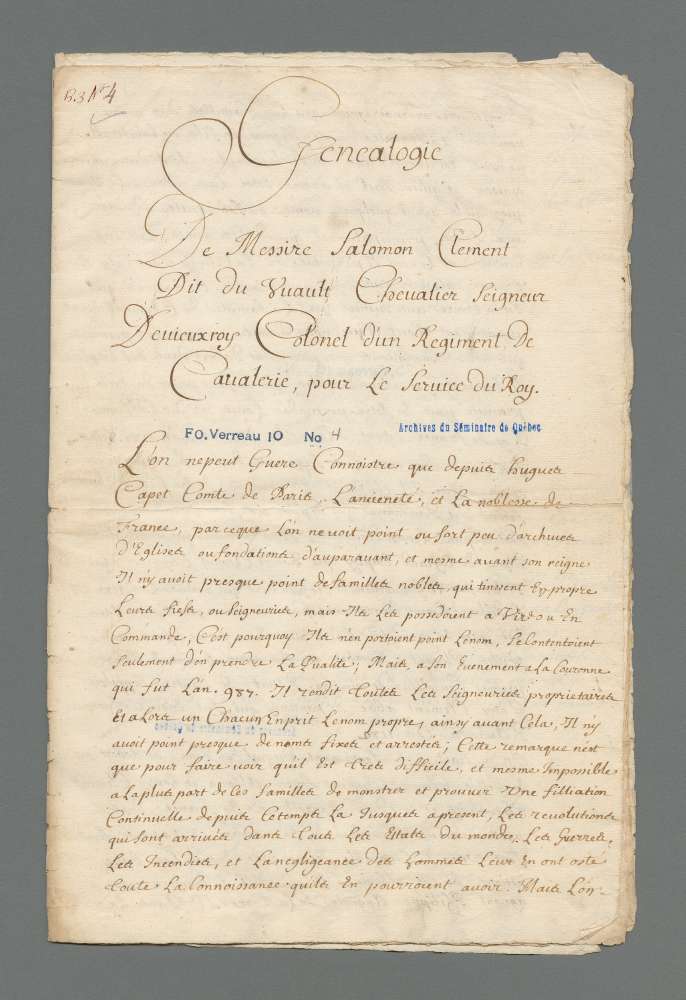 B.3 N° 4
Genealogie
De Messire Salomon Clement
Dit du Vuault Chevalier Seigneur
Devieuxroy Colonel d'un Regiment De
Cavalerie, pour Le Service Du Roy.
FO. Verreau 10 No 4
Archives du Séminaire de Québec
L'on nepeut Guere Connoistre que depuis hugues
Capet Comte de Paris, L'ancieneté, et La noblesse de
France, parceque L'on ne voit point ou fort peu d'archives
D'Eglises ou fondations d'auparavant, et mesme avant son reigne
Il n'y avoit presque point de familles nobles, qui tinssent En propre
Leurs fiefs, ou Seigneuries, mais Ils Les possedoient a Vie ou En
Commande, C'est pourquoy Ils n'en portoient point Lenom, Se Contentoient
Seulement d'en prendre La Qualité; Mais, a son Evenement a La Couronne
qui fut L'an 987. Il rendit toutes Les Seigneuries proprietaires
Et alors un Chacun En prit Lenom propre, ainsy avant Cela, Il n'y
avoit point presque de noms fixes et arrestés; Cette remarque n'est
que pour faire voir qu'il Est tres difficile, et mesme Impossible
a La plus part de Ces familles de monstrer et prouver Une filliation
Continuelle depuis Cetemps La Jusques apresent; Les revolutions
qui sont arrivées dans toutes Les Estats du monde, Les Guerres,
Les Incendies, et La negligeance des hommes Leur En ont osté
toute La Connoissance qu'ils En pourroient avoir. Mais L'on